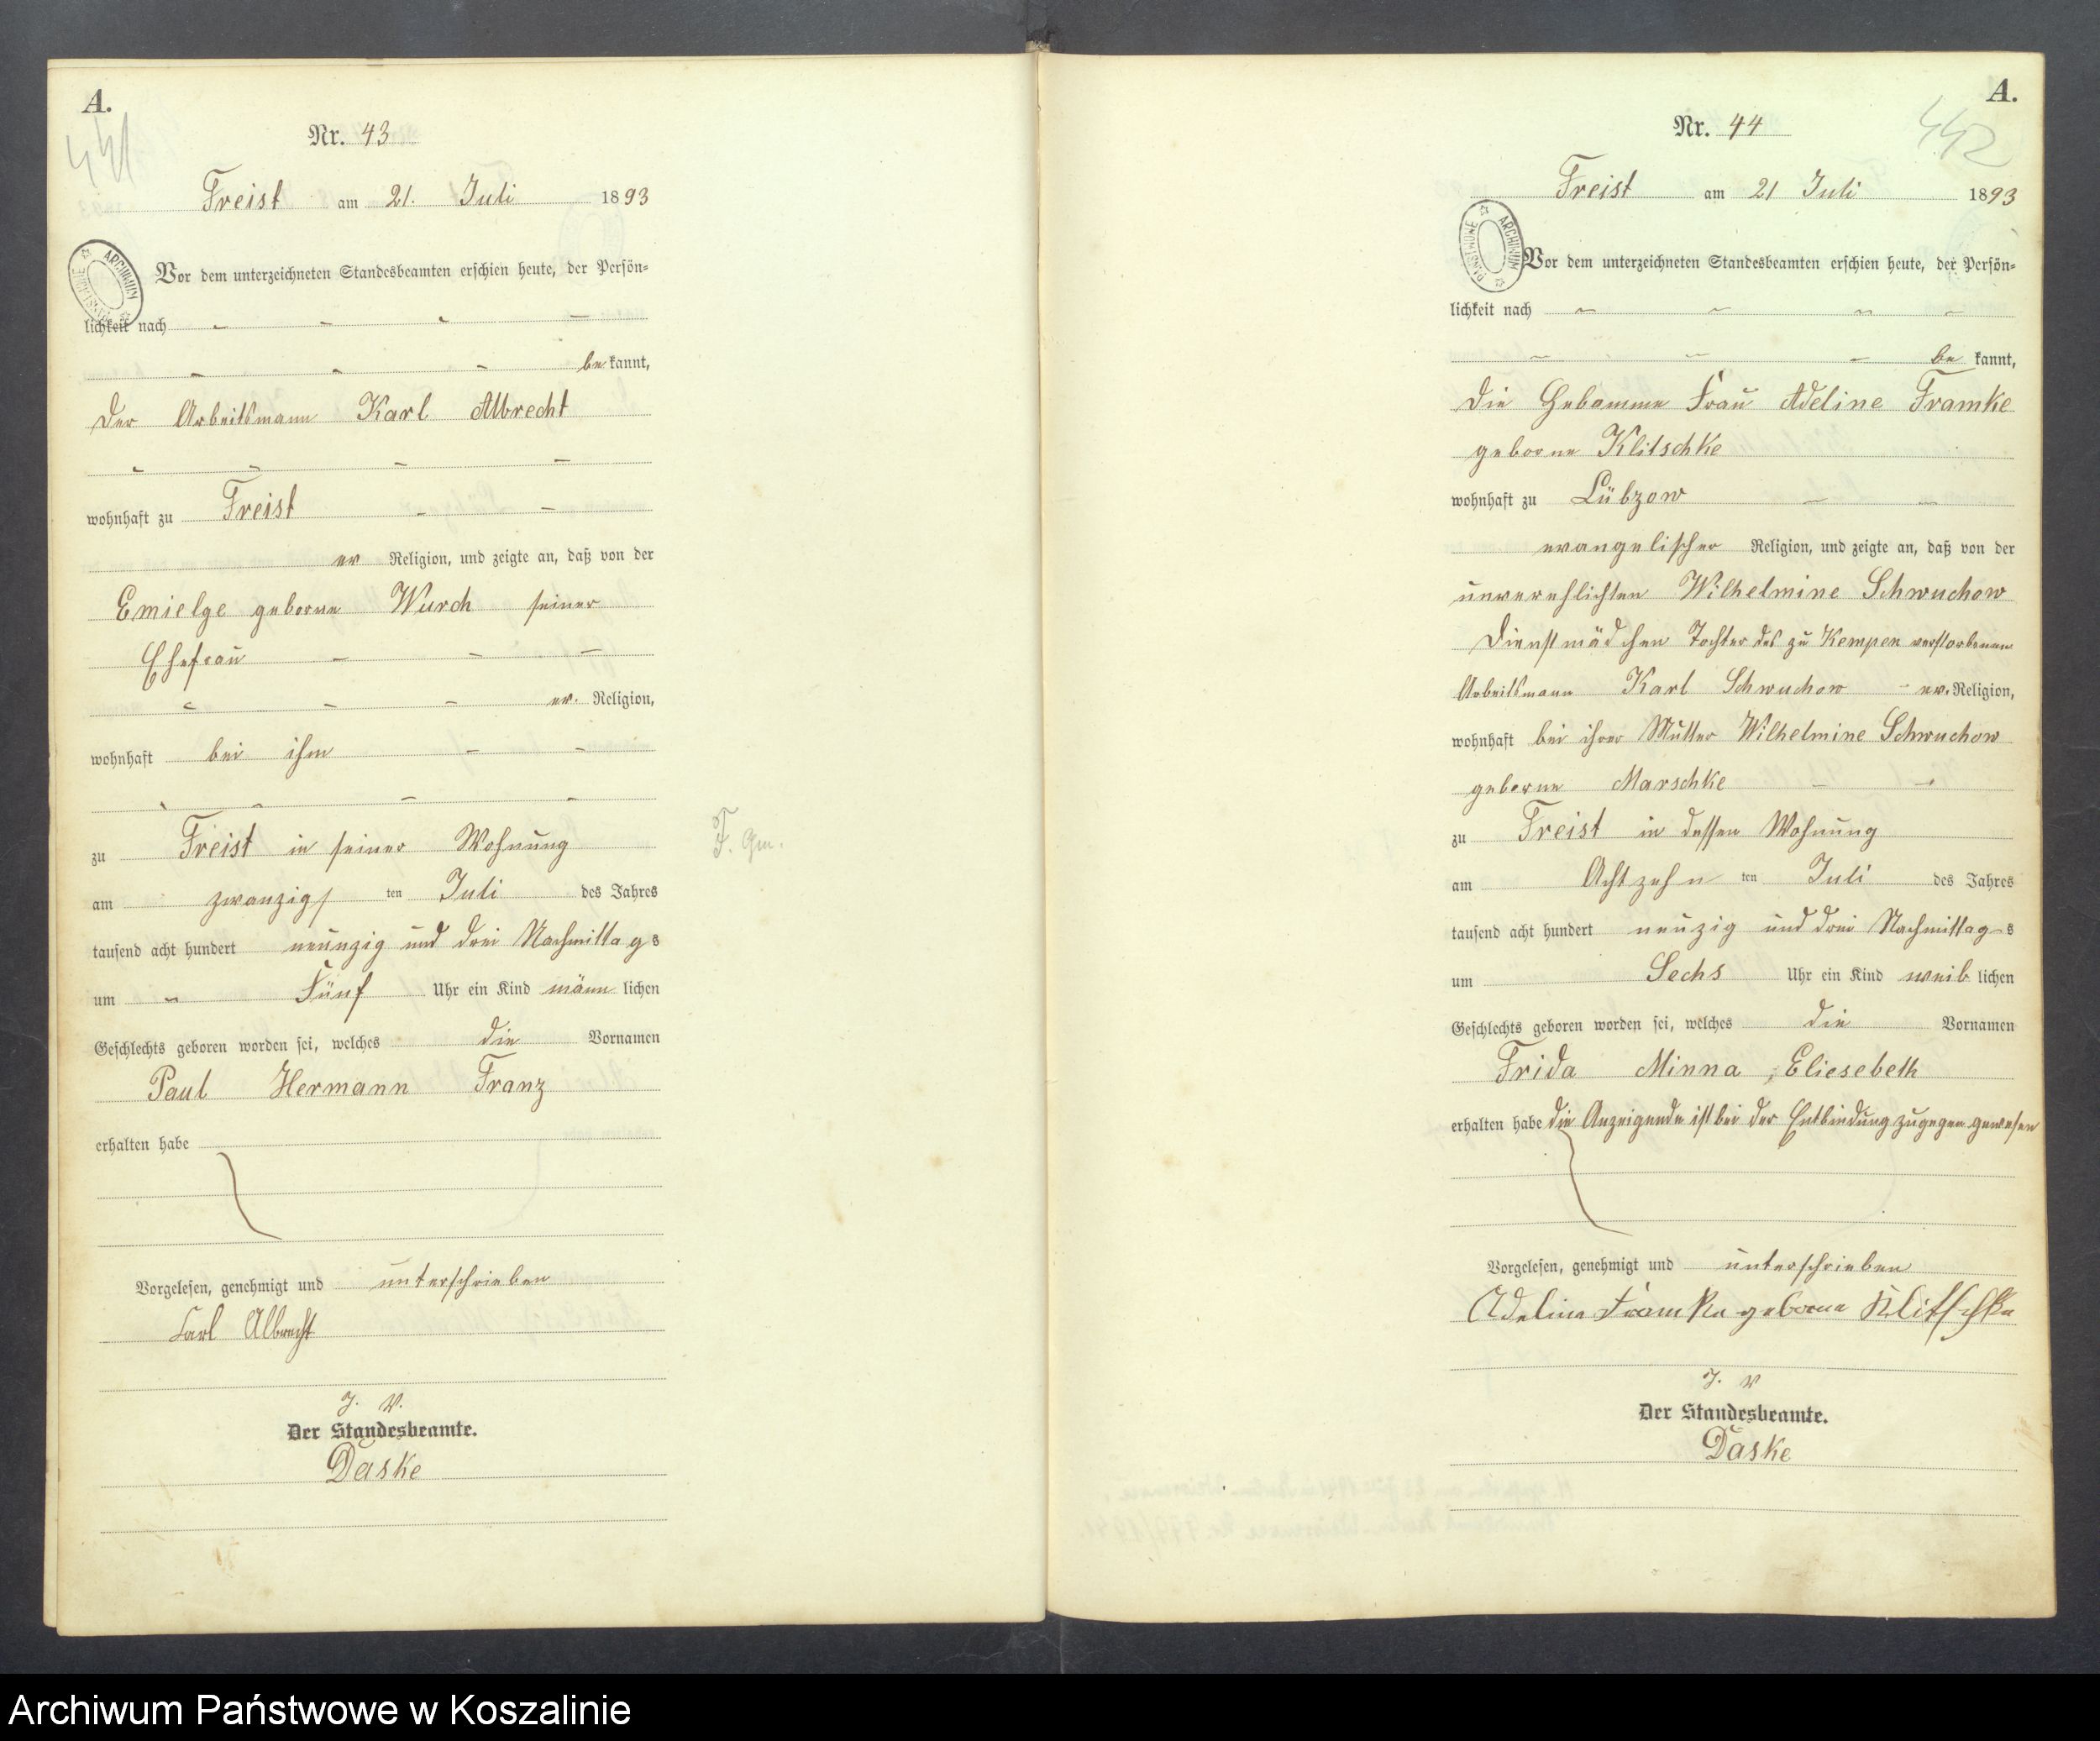 A.
441
Nr. 43
Freist am 21. Juli 1893
ARCHIWUM PAŃSTWOWE
Vor dem unterzeichneten Standesbeamten erschien heute, der Persön=
lichkeit nach
be kannt,
der Arbeitsmann Karl Albrecht
wohnhaft zu Freist
ev Religion, und zeigte an, daß von der
Emielge geborne Wurch seiner
Ehefrau
ev. Religion,
wohnhaft bei ihm
zu Freist in seiner Wohnung
am zwanzigs ten Juli des Jahres
tausend acht hundert neunzig und drei Nachmittag s
um Fünf Uhr ein Kind männ lichen
Geschlechts geboren worden sei, welches die Vornamen
Paul Hermann Franz
erhalten habe
Vorgelesen, genehmigt und unterschrieben
Carl Albrecht
J. V.
Der Standesbeamte.
Daske
F. Gm.
A.
442
Nr. 44
Freist am 21 Juli 1893
ARCHIWUM PAŃSTWOWE
Vor dem unterzeichneten Standesbeamten erschien heute, der Persön=
lichkeit nach
be kannt,
die Hebamme Frau Adeline Framke
geborne Klitschke
wohnhaft zu Lübzow
evangelischer Religion, und zeigte an, daß von der
unverehlichten Wilhelmine Schwuchow
Dienstmädchen Tochter des zu Kempen verstorbenen
Arbeitsmann Karl Schwuchow ev. Religion,
wohnhaft bei ihrer Mutter Wilhelmine Schwuchow
geborne Marschke
zu Freist in dessen Wohnung
am Achtzehn ten Juli des Jahres
tausend acht hundert neuzig und drei Nachmittag s
um Sechs Uhr ein Kind weib lichen
Geschlechts geboren worden sei, welches die Vornamen
Frida Minna, Eliesebeth
erhalten habe die Anzeigende ist bei der Entbindung zugegen gewesen
Vorgelesen, genehmigt und unterschrieben
Adeline Framke geborne Klitschke
J. V
Der Standesbeamte.
Daske
Archiwum Państwowe w Koszalinie